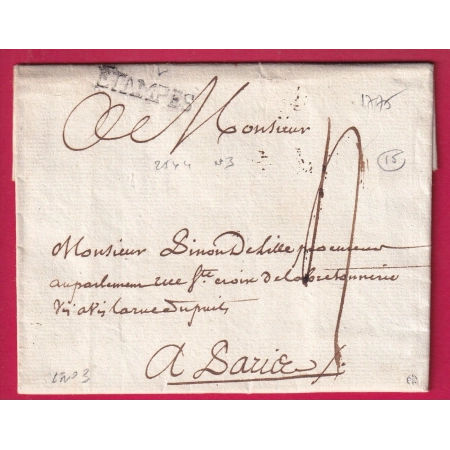 ETAMPES
1775
A Monsieur
15
2544 n°3
Monsieur Pinon Delille procureur
au parlement rue Ste croix de la bretonnerie
vis a vis la rue du puits
A Paris
L n° 3